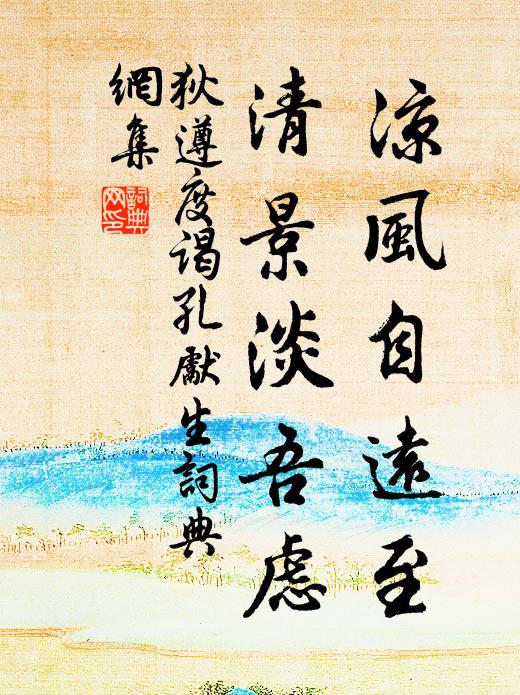 凉風自遠至
清景淡吾慮
狄遵度謁孔獻生詞典
網集
詞典
網印